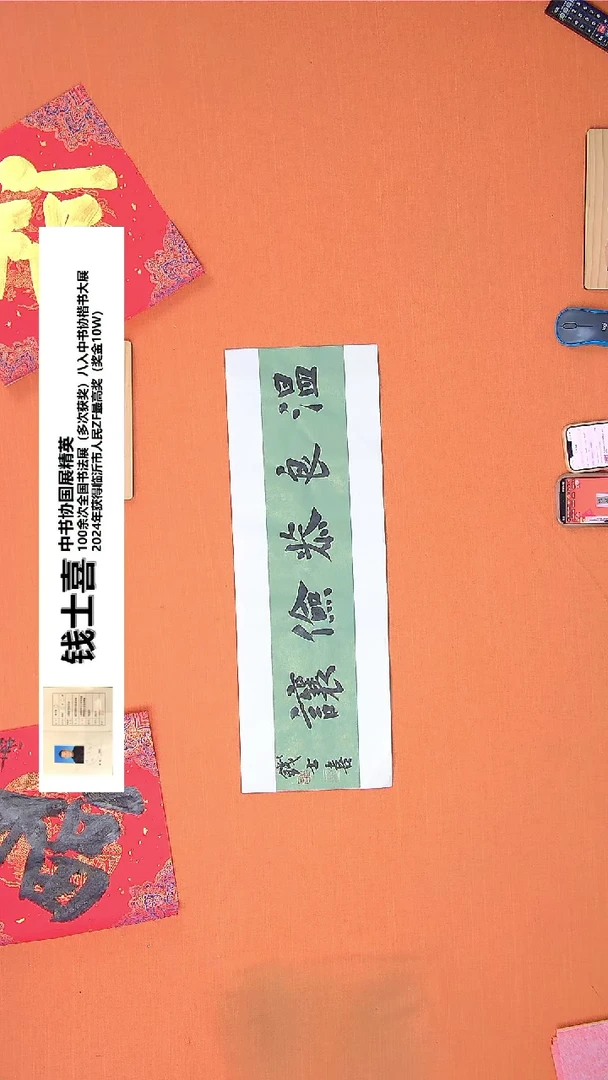 溫良恭儉讓
錢士喜
钱士喜
中书协国展精英
100余次全国书法展（多次获奖）八入中书协楷书大展
2024年获得临沂市人民ZF最高奖（奖金10W）